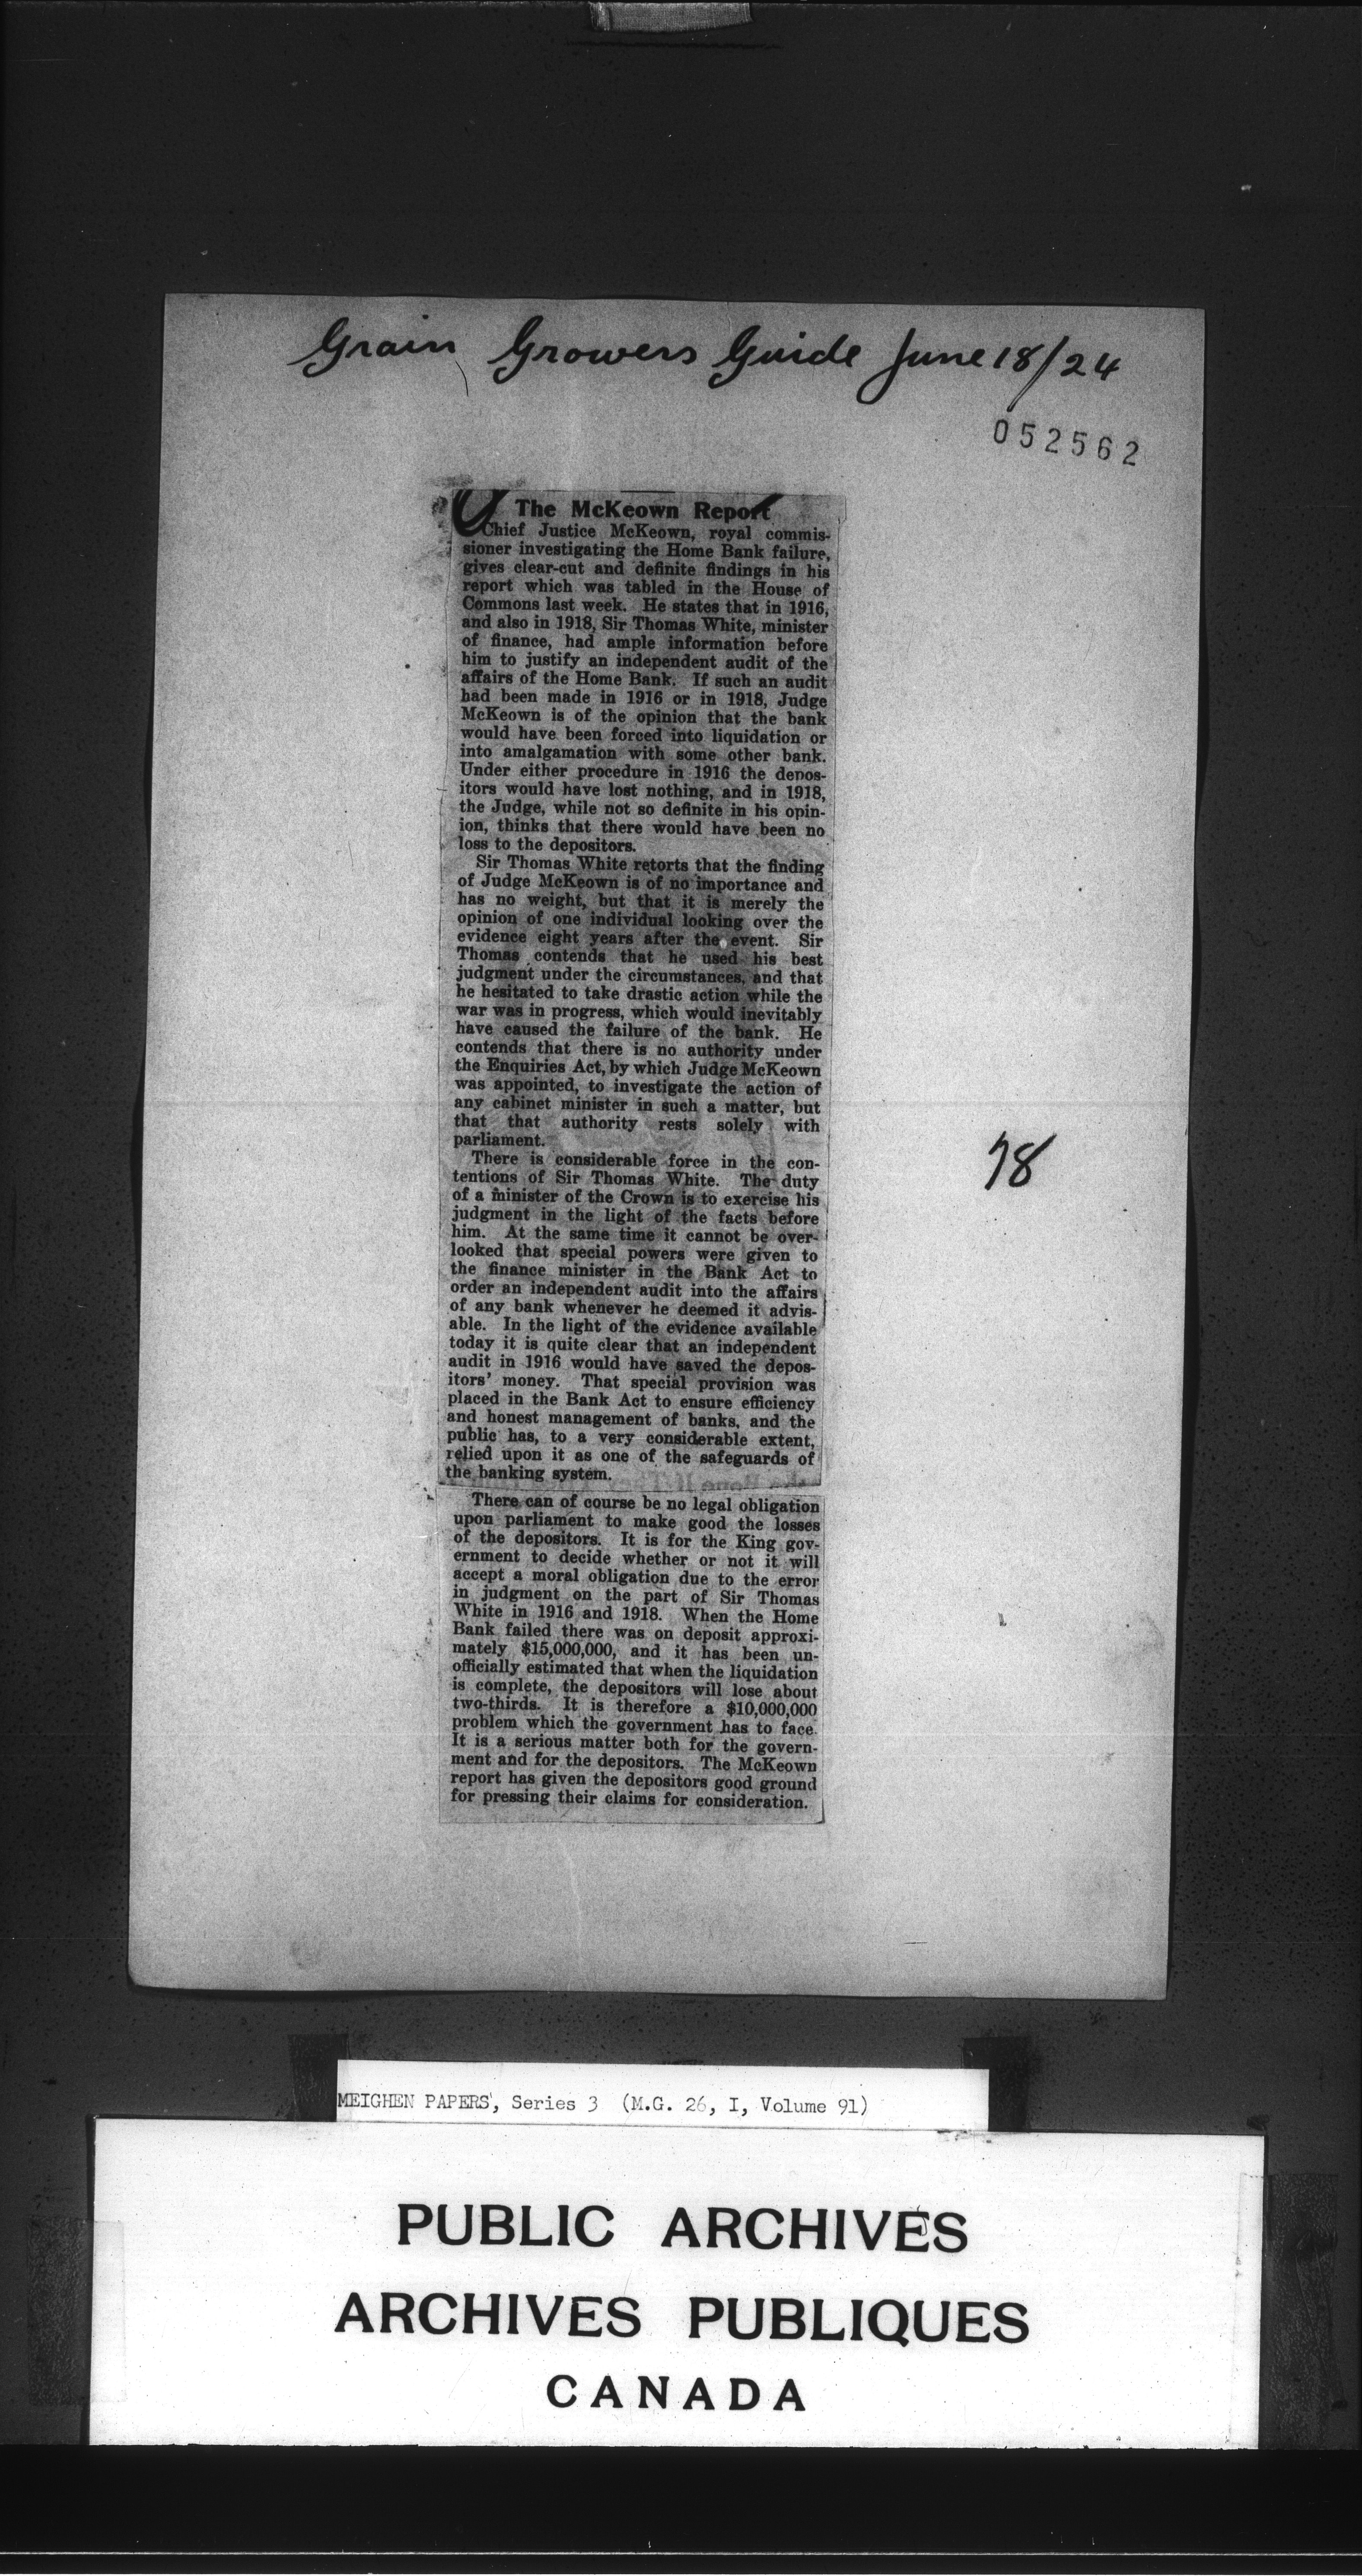 Grain Growers Guide June 18/24
052562
The McKeown Report
Chief Justice McKeown, royal commis-
sioner investigating the Home Bank failure,
gives clear-cut and definite findings in his
report which was tabled in the House of
Commons last week. He states that in 1916,
and also in 1918, Sir Thomas White, minister
of finance, had ample information before
him to justify an independent audit of the
affairs of the Home Bank. If such an audit
had been made in 1916 or in 1918, Judge
McKeown is of the opinion that the bank
would have been forced into liquidation or
into amalgamation with some other bank.
Under either procedure in 1916 the depos-
itors would have lost nothing, and in 1918,
the Judge, while not so definite in his opin-
ion, thinks that there would have been no
loss to the depositors.
Sir Thomas White retorts that the finding
of Judge McKeown is of no importance and
has no weight, but that it is merely the
opinion of one individual looking over the
evidence eight years after the event. Sir
Thomas contends that he used his best
judgment under the circumstances, and that
he hesitated to take drastic action while the
war was in progress, which would inevitably
have caused the failure of the bank. He
contends that there is no authority under
the Enquiries Act, by which Judge McKeown
was appointed, to investigate the action of
any cabinet minister in such a matter, but
that that authority rests solely with
parliament.
There is considerable force in the con-
tentions of Sir Thomas White. The duty
of a minister of the Crown is to exercise his
judgment in the light of the facts before
him. At the same time it cannot be over-
looked that special powers were given to
the finance minister in the Bank Act to
order an independent audit into the affairs
of any bank whenever he deemed it advis-
able. In the light of the evidence available
today it is quite clear that an independent
audit in 1916 would have saved the depos-
itors' money. That special provision was
placed in the Bank Act to ensure efficiency
and honest management of banks, and the
public has, to a very considerable extent,
relied upon it as one of the safeguards of
the banking system.
There can of course be no legal obligation
upon parliament to make good the losses
of the depositors. It is for the King gov-
ernment to decide whether or not it will
accept a moral obligation due to the error
in judgment on the part of Sir Thomas
White in 1916 and 1918. When the Home
Bank failed there was on deposit approxi-
mately $15,000,000, and it has been un-
officially estimated that when the liquidation
is complete, the depositors will lose about
two-thirds. It is therefore a $10,000,000
problem which the government has to face.
It is a serious matter both for the govern-
ment and for the depositors. The McKeown
report has given the depositors good ground
for pressing their claims for consideration.
78
MEIGHEN PAPERS, Series 3 (M.G. 26, I, Volume 91)
PUBLIC ARCHIVES
ARCHIVES PUBLIQUES
CANADA